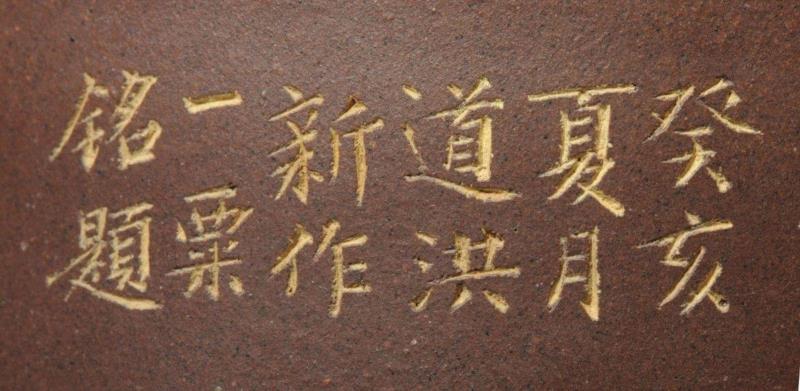 癸亥
夏月
道洪
新作
一粟
銘題